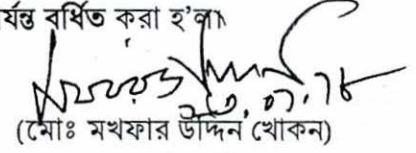 র্যন্ত বর্ধিত করা হ'ল।
(মোঃ মখফার উদ্দিন খোকন)